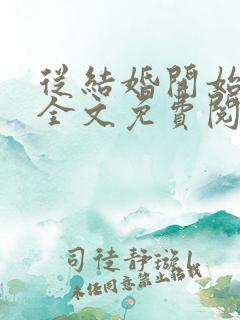 從結婚開始
全文免費閱
司徒靜璇l
未经同意禁止转载